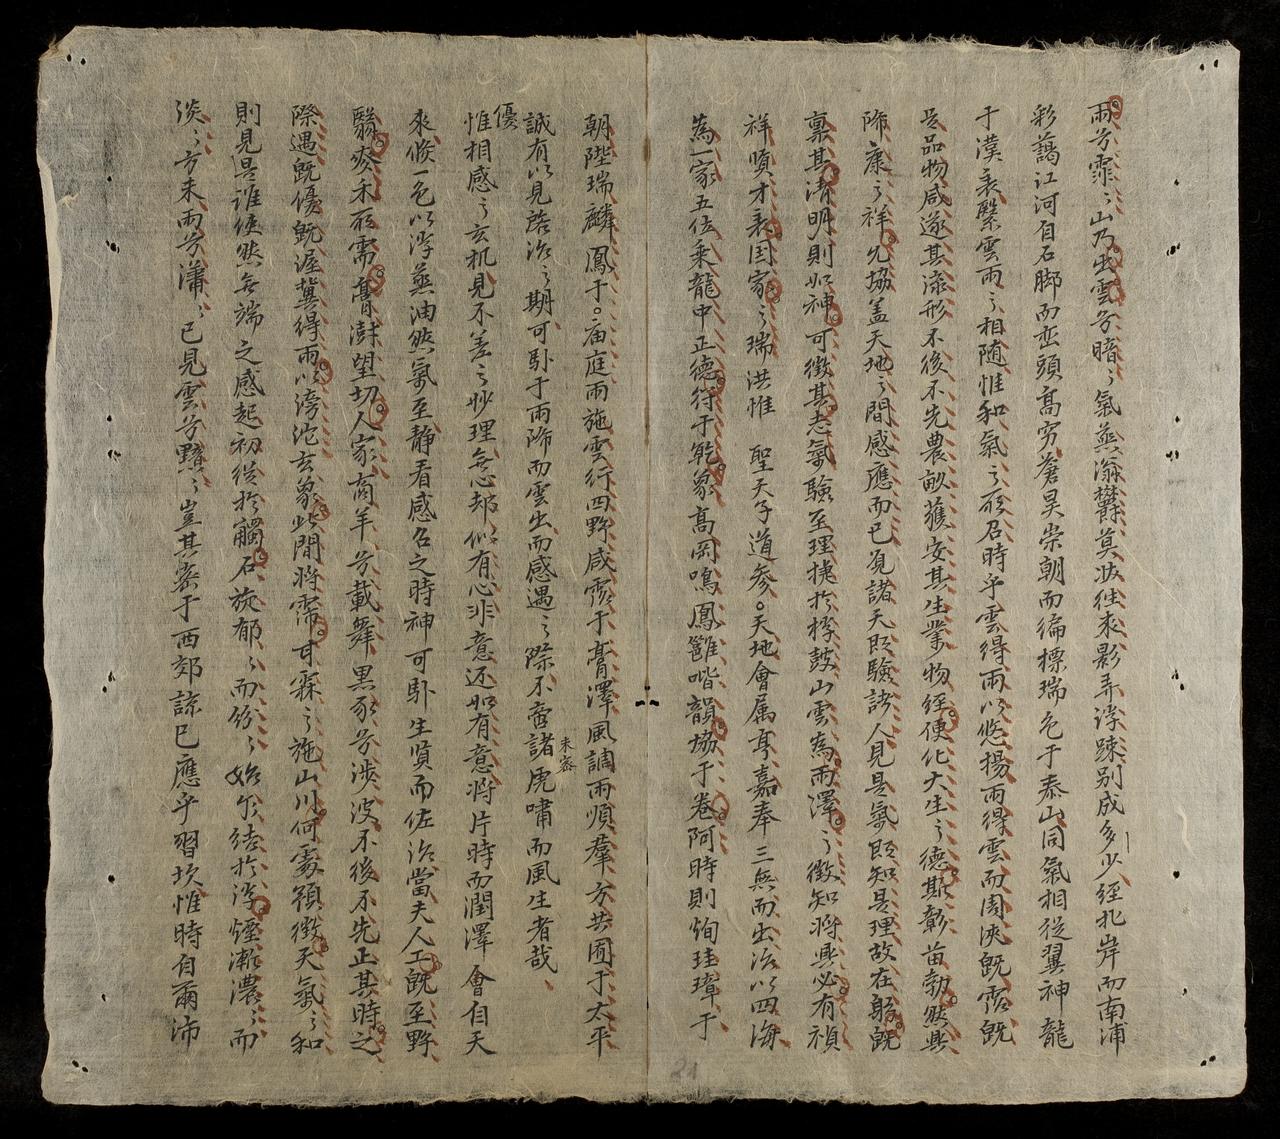 雨兮霏〻山乃出雲兮暗〻氣蒸滃欝莫妝徃来影弄浮踈别成多少經北岸而南浦
彩藹江河自石脚而峦頭高穷蒼昊崇朝而徧標瑞色于泰山同氣相從翼神龍
于漢表繄雲雨之相随惟和氣之形召時乎雲得雨以悠揚雨得雲而周浹旣霑旣
足品物咸遂其流形不後不先農畝蒦安其生業物經使化大生之德斯彰苗勃然興
降康之祥允協盖天地之間感應而已覓諸天既驗諸人見是氣既知是理故在躬旣
禀其清明則如神可徴其志氣驗至理捷於桴鼓山雲為雨澤之徴知将興必有禎
祥嘖才表国家之瑞洪惟 聖天子道参天地會属亨嘉奉三無而出治以四海
為一家五位乘龍中正德行于乾象高岡鳴鳳雝喈韻協于卷阿時則珣珪璋于
朝陛瑞麟鳳于庙庭雨施雲行四野咸霑于膏澤風調雨順羣方共囿于太平
誠有以見諮治之期可卧于雨降而雲出而感遇之際不啻諸虎嘯而風生者哉
未啻
優
惟相感之玄机見不差之妙理無心却似有心非意还如有意将片時而潤澤會自天
来倐一色以浮蒸油然氣至静看感召之時神可卧生贤而佐治當夫人工旣至野
翳麥禾形需膏澍望切人家商羊兮載舞黒豕兮涉波不後不先正其時之
際遇旣優旣渥兾得雨以滂沱玄象此間将霈甘霖之施山川何處預徴天氣之和
則見是誰使然無端之感起初從於觸石旋郁〻而紛〻始尔结於浮煙漸濃〻而
淡〻方未雨兮瀟〻已見雲兮黯〻豈其密于西郊諒已應乎習坎惟時自爾沛